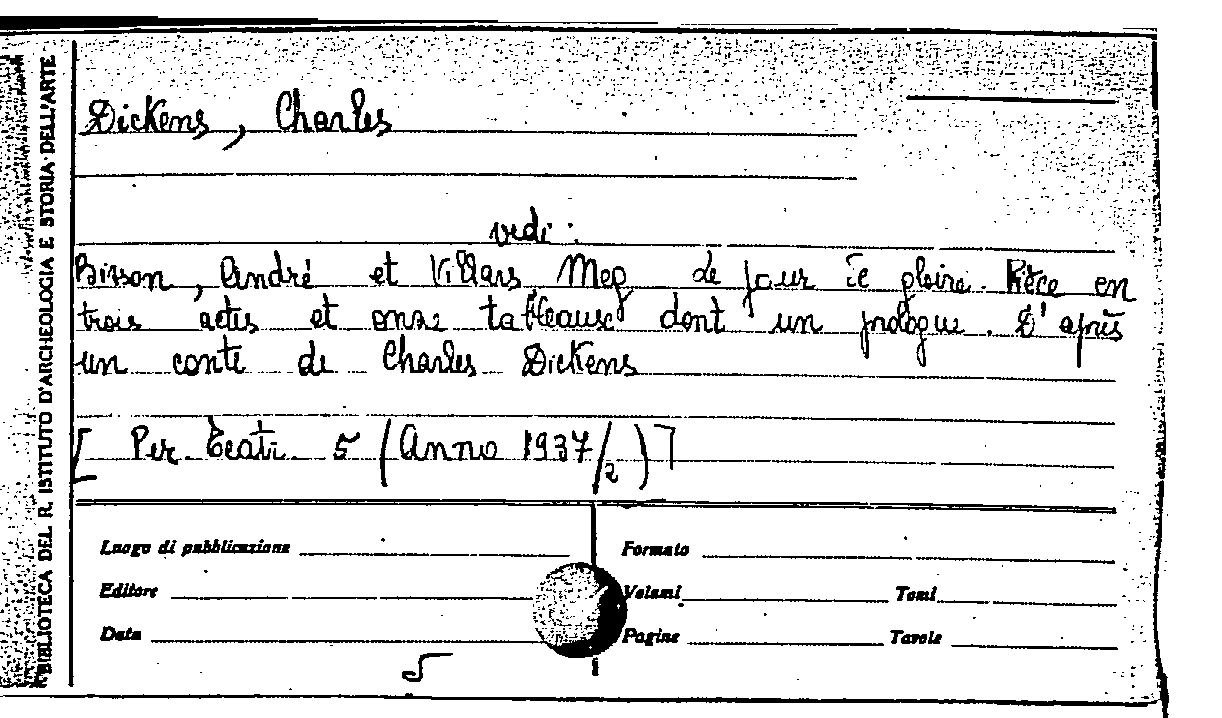 Dickens, Charles
vedi:
Bisson, André et Villars, Meg de jour de pluie. Pièce en
trois actes et onze tableaux dont un prologue. D'après
un conte de Charles Dickens
[Per. Teatr. 5 (Anno 1937/2)]
Luogo di pubblicazione
Formato
Editore
Volumi
Tomi
Data
Pagine
Tavole
5
BIBLIOTECA DEL R. ISTITUTO D'ARCHEOLOGIA E STORIA DELL'ARTE